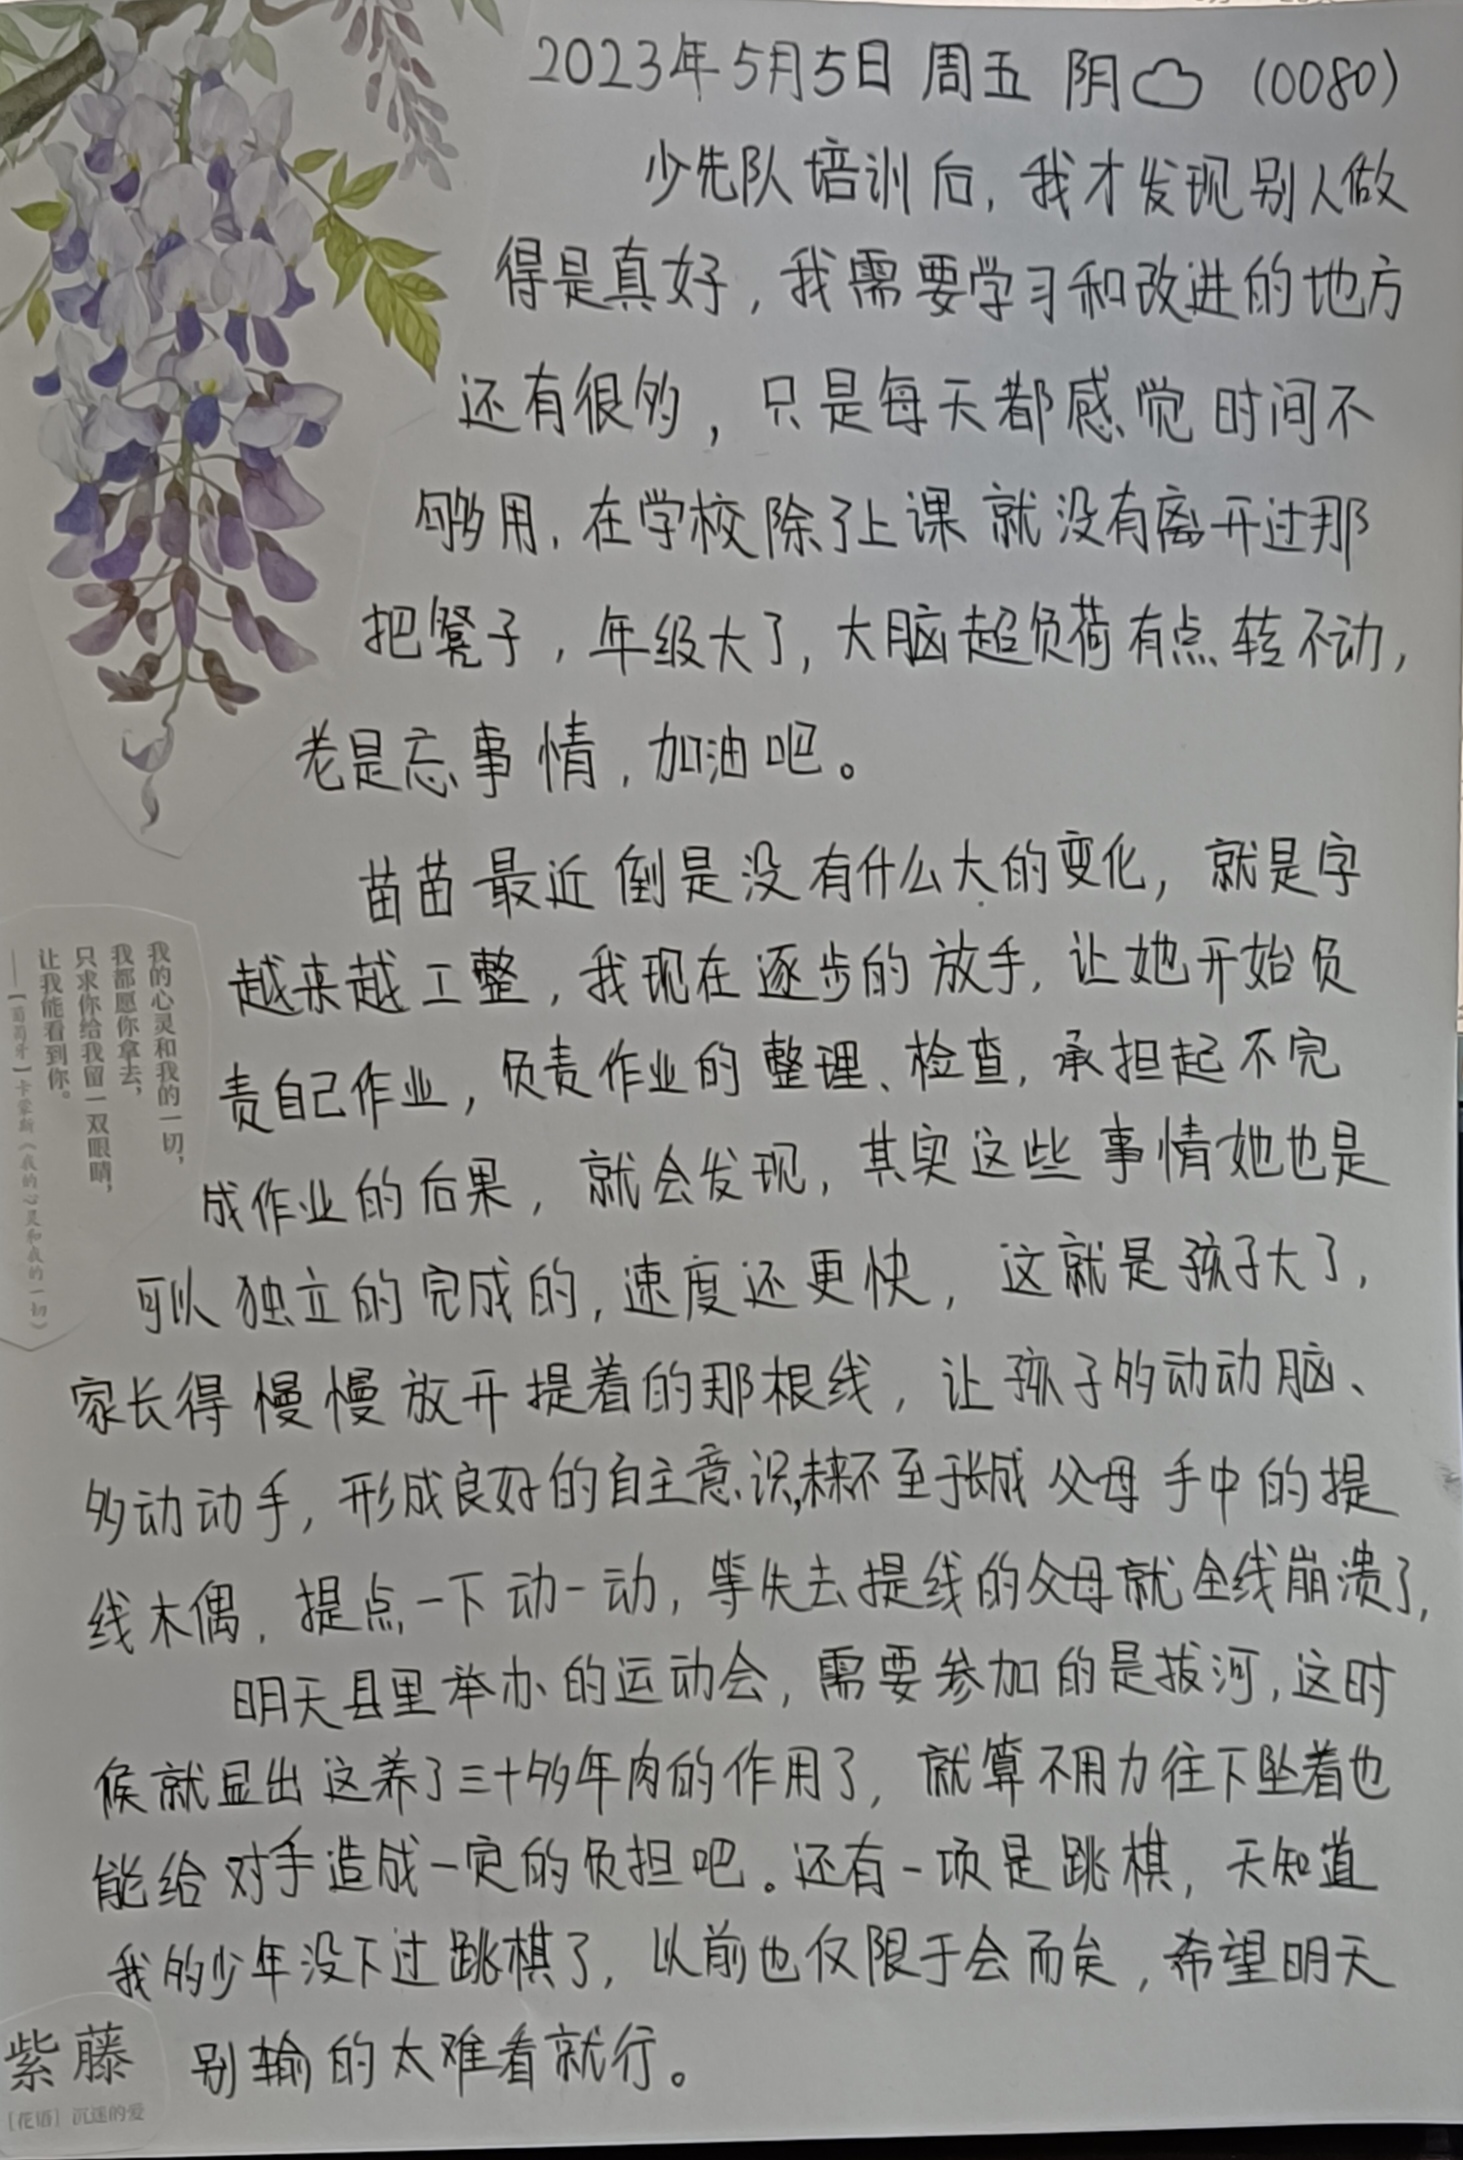 2023年5月5日 周五 阴 (0080)
少先队培训后,我才发现别人做
得是真好,我需要学习和改进的地方
还有很多,只是每天都感觉时间不
够用,在学校除了上课就没有离开过那
把凳子,年级大了,大脑超负荷有点转不动,
老是忘事情,加油吧。
苗苗最近倒是没有什么大的变化,就是字
越来越工整,我现在逐步的放手,让她开始负
责自己作业,负责作业的整理、检查,承担起不完
成作业的后果,就会发现,其实这些事情她也是
可以独立的完成的,速度还更快,这就是孩子大了,
家长得慢慢放开提着的那根线,让孩子多动动脑、
多动动手,形成良好的自主意识,未来不至于长成父母手中的提
线木偶,提点一下动一动,等失去提线的父母就全线崩溃了,
明天县里举办的运动会,需要参加的是拔河,这时
候就显出这养了三十多年肉的作用了,就算不用力往下坠着也
能给对手造成一定的负担吧。还有一项是跳棋,天知道
我的少年没下过跳棋了,以前也仅限于会而矣,希望明天
别输的太难看就行。
我的心灵和我的一切,
我都愿你拿去,
只求你给我留一双眼睛,
让我能看到你。
——[葡萄牙]卡蒙斯《我的心灵和我的一切》
紫藤
[花语] 沉迷的爱